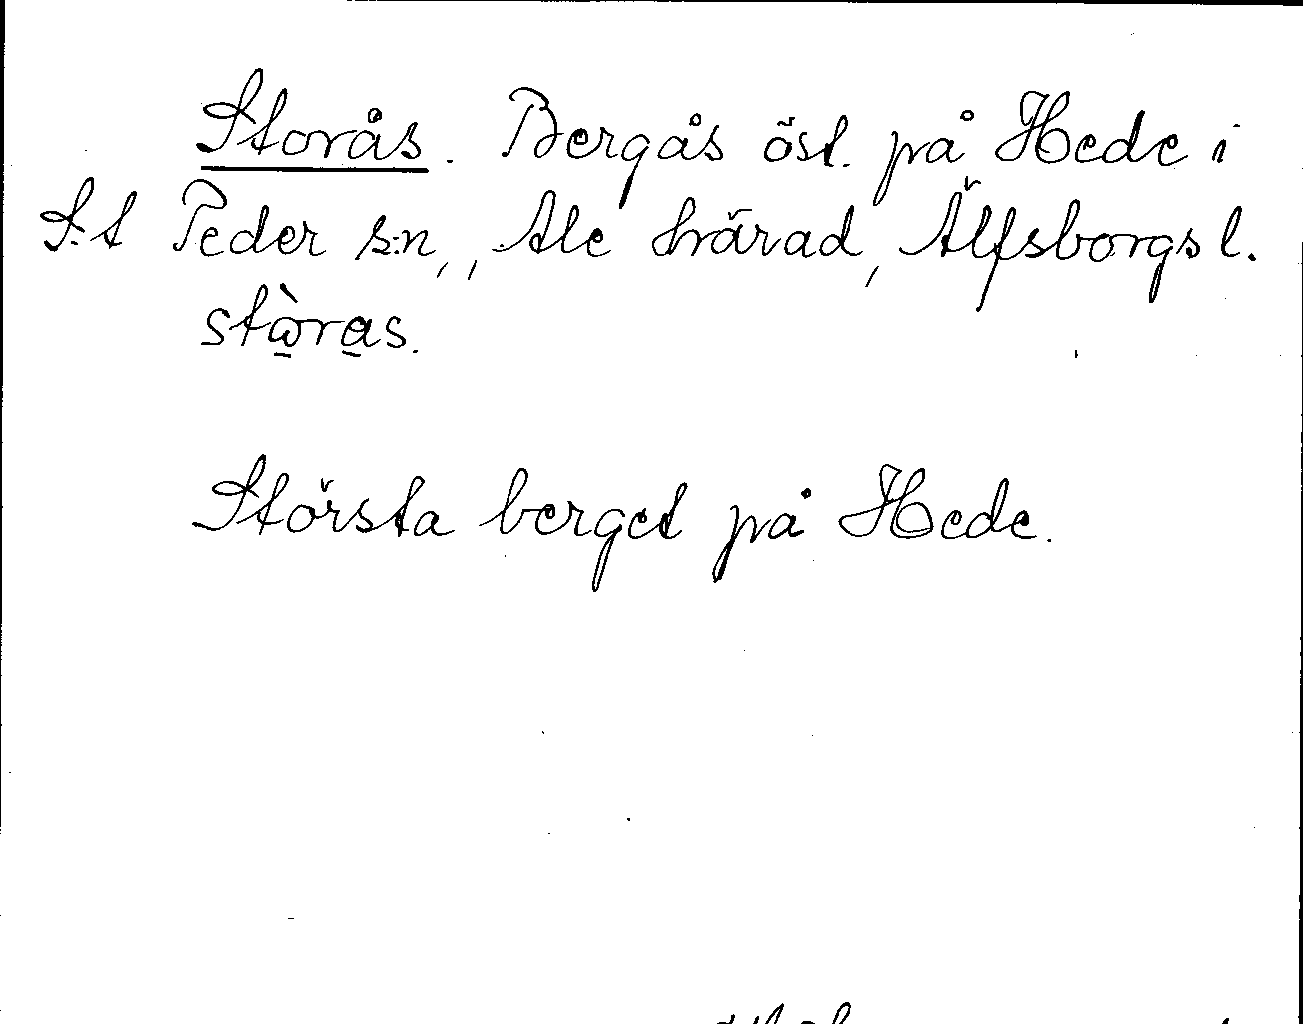 Storås. Bergås öst. på Hede i
S:t Peder s:n,, Ale härad, Älfsborgs l.
stòras.
Största berget på Hede.